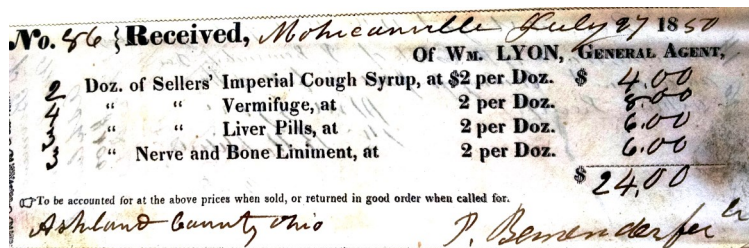 No. 86 } Received, Mohicanville July 27 1850
Of WM. LYON, GENERAL AGENT,
2 Doz. of Sellers' Imperial Cough Syrup, at $2 per Doz. $ 4.00
4 " " Vermifuge, at 2 per Doz. 8.00
3 " " Liver Pills, at 2 per Doz. 6.00
3 " Nerve and Bone Liniment, at 2 per Doz. 6.00
$ 24,00
☞To be accounted for at the above prices when sold, or returned in good order when called for.
Ashland County Ohio P.